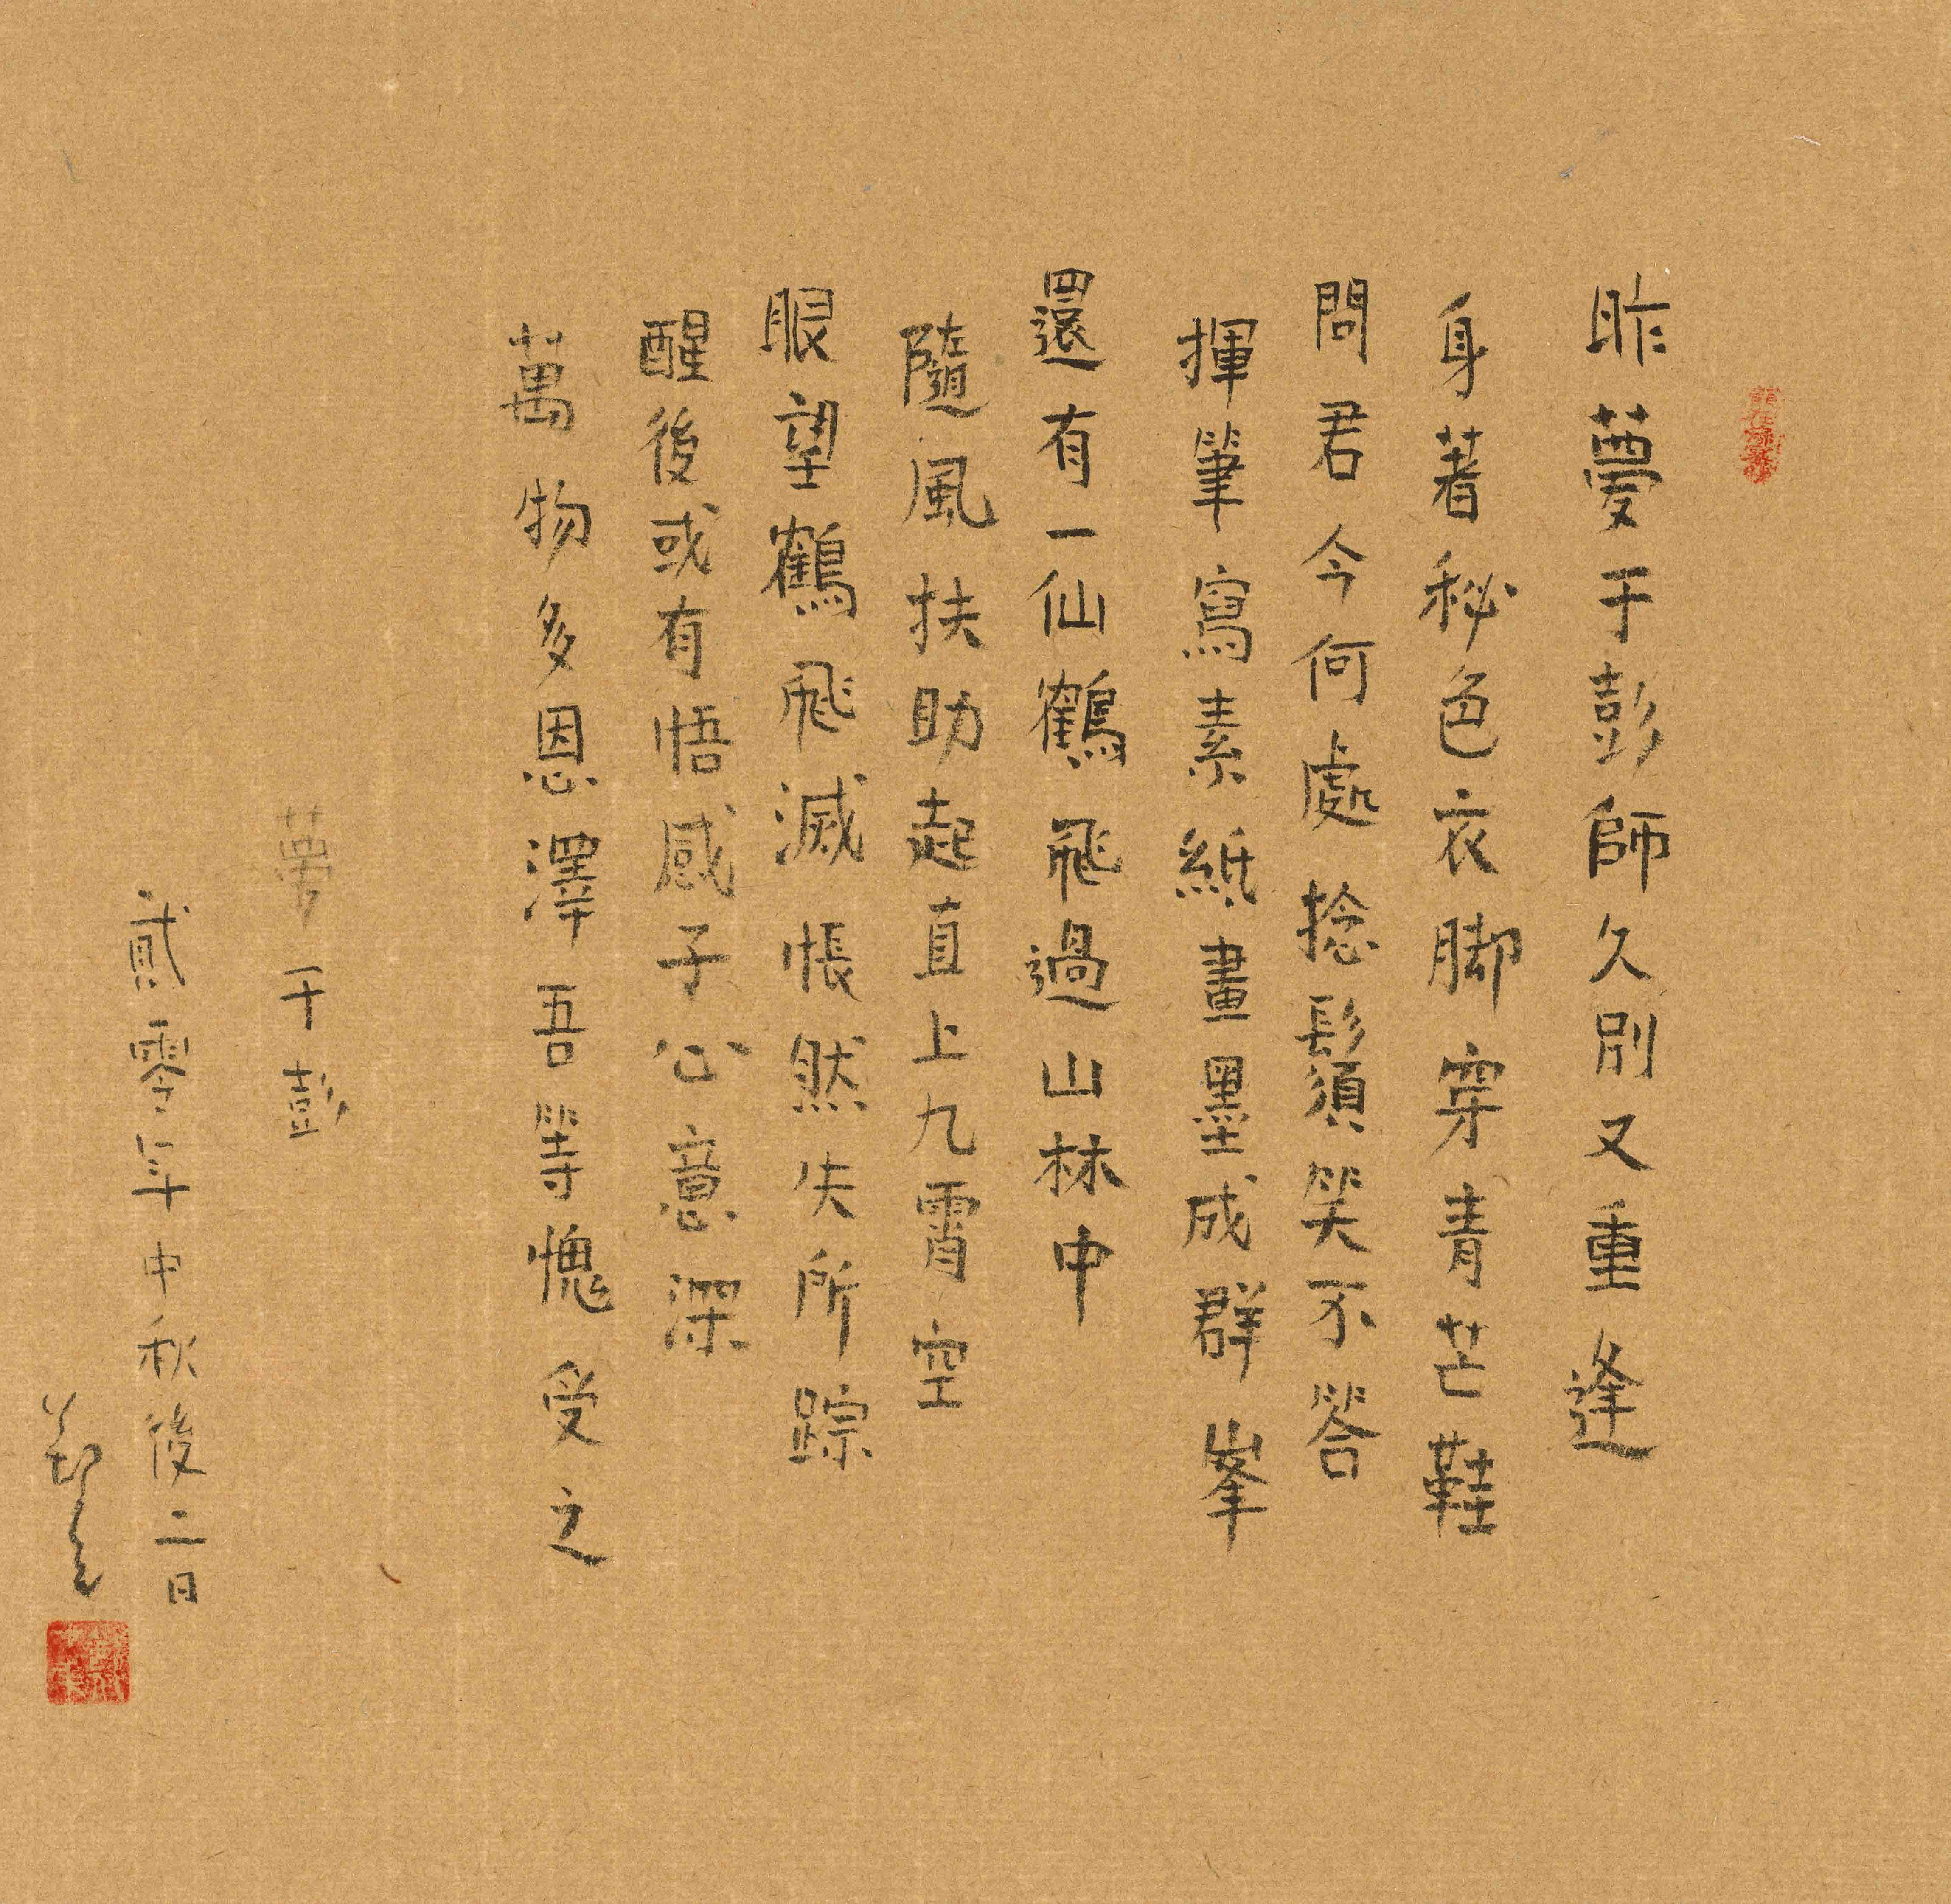 昨夢于彭師久別又重逢
身著秘色衣脚穿青芒鞋
問君今何處捻鬚笑不答
揮筆寫素紙畫墨成群峯
還有一仙鶴飛過山林中
隨風扶助起直上九霄空
眼望鶴飛滅悵然失所踪
醒後或有悟感子心意深
萬物多恩澤吾等愧受之
夢于彭
貳零年中秋後二日